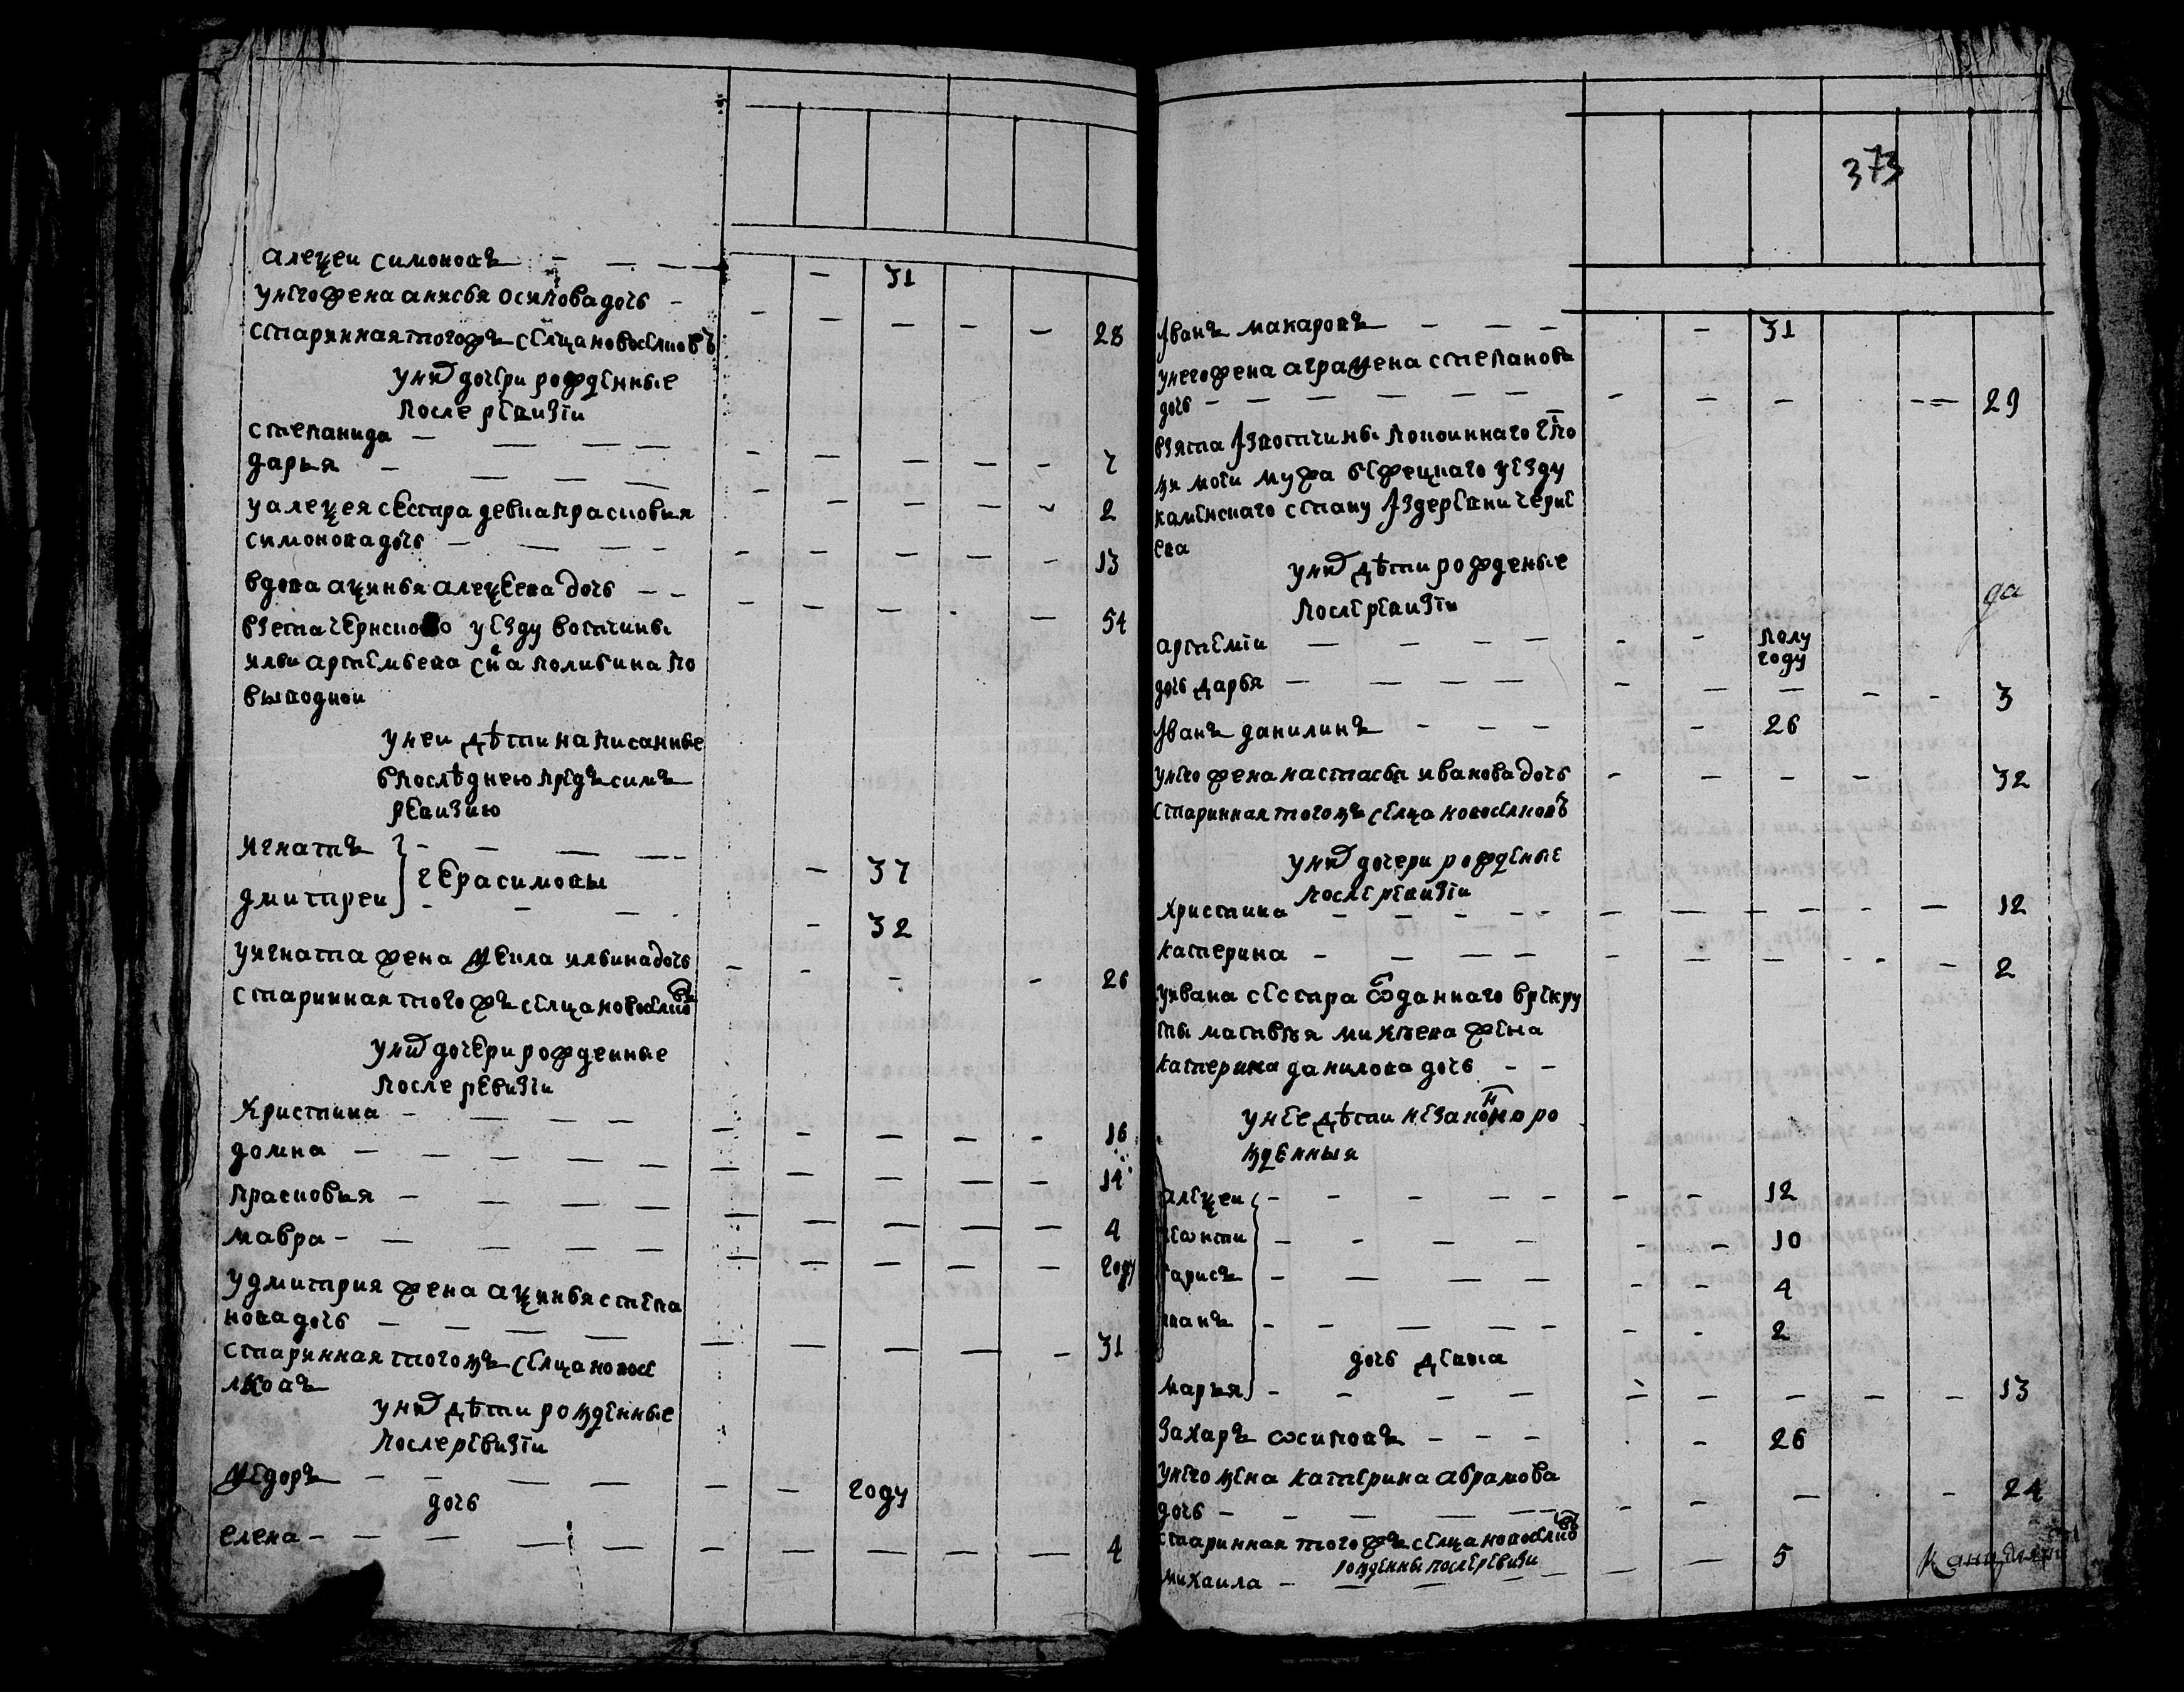 алеѯеи симоновъ — — — 31
унегожена анисья осиповадочь — 28
стариннаятогожъ сельцановоселковъ
унихъ дочери рожденные
после ревизїи
степанида — — — 7
дарья — — — 2
уалеѯея сестра девка прасковья
симоновадочь — — — 13
вдова аѯинья алеѯеева дочь — — 54
взета чернского уезду вотчины
ильи артемьева сна поливина по
выводнои
унеи дѣти написанные
впослѣднею предъсимъ
ревизию
игнатъ — — — 37
герасимовы
дмитреи — — — 32
уигната жена ѳекла ильинадочь 26
стариннаятогожъ сельцановоселковъ
унихъ дочери рожденные
после ревизїи
христина — — — 16
домна — — — 14
прасковья — — — 4
мавра — — — году
удмитрия жена аѯинья степа
нова дочь — — — 31
старинная тогожъ сельца новосе
лковъ
унихъ дѣти рожденные
послеревизїи
ѳедоръ — — — году
дочь
елена — — — 4
373
Иванъ макаровъ — — — 31
унегожена аграѳена степанова
дочь — — — 29
взята Извотчины покоиннаго
жи моеи мужа бежецкаго уезду
каменскаго стану Издеревни черне
ева
унихъ дѣти рожденые
послеревизїи
да
артемїи — — — полу
году
дочь дарья — — — 3
Иванъ данилинъ — — — 26
унего жена настасья ивановадочь 32
старинная тогожъ сельца новоселковъ
унихъ дочери рожденые
послеревизїи
христина — — — 12
катерина — — — 2
уивана сестра ѿданнаго врекру
ты матвѣя михѣева жена
катерина данилова дочь — —
унее дѣти незаконноро
жденныя
алеѯеи — — — 12
леонти — — — 10
борисъ — — — 4
иванъ — — — 2
дочь девка
марья — — — 13
Захаръ осиповъ — — — 26
унего жена катерина абрамова
дочь — — — 24
старинная тогожъ сельца новоселковъ
рожденны послеревизи
михаила — — — 5